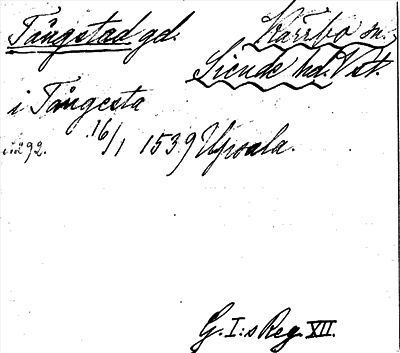 Tångstad gd. Kärrbo sn.
Siende hd. Vstl.
i Tångesta
16/1 1539 Upsala.
s. 292.
G. I:s Reg. XII.